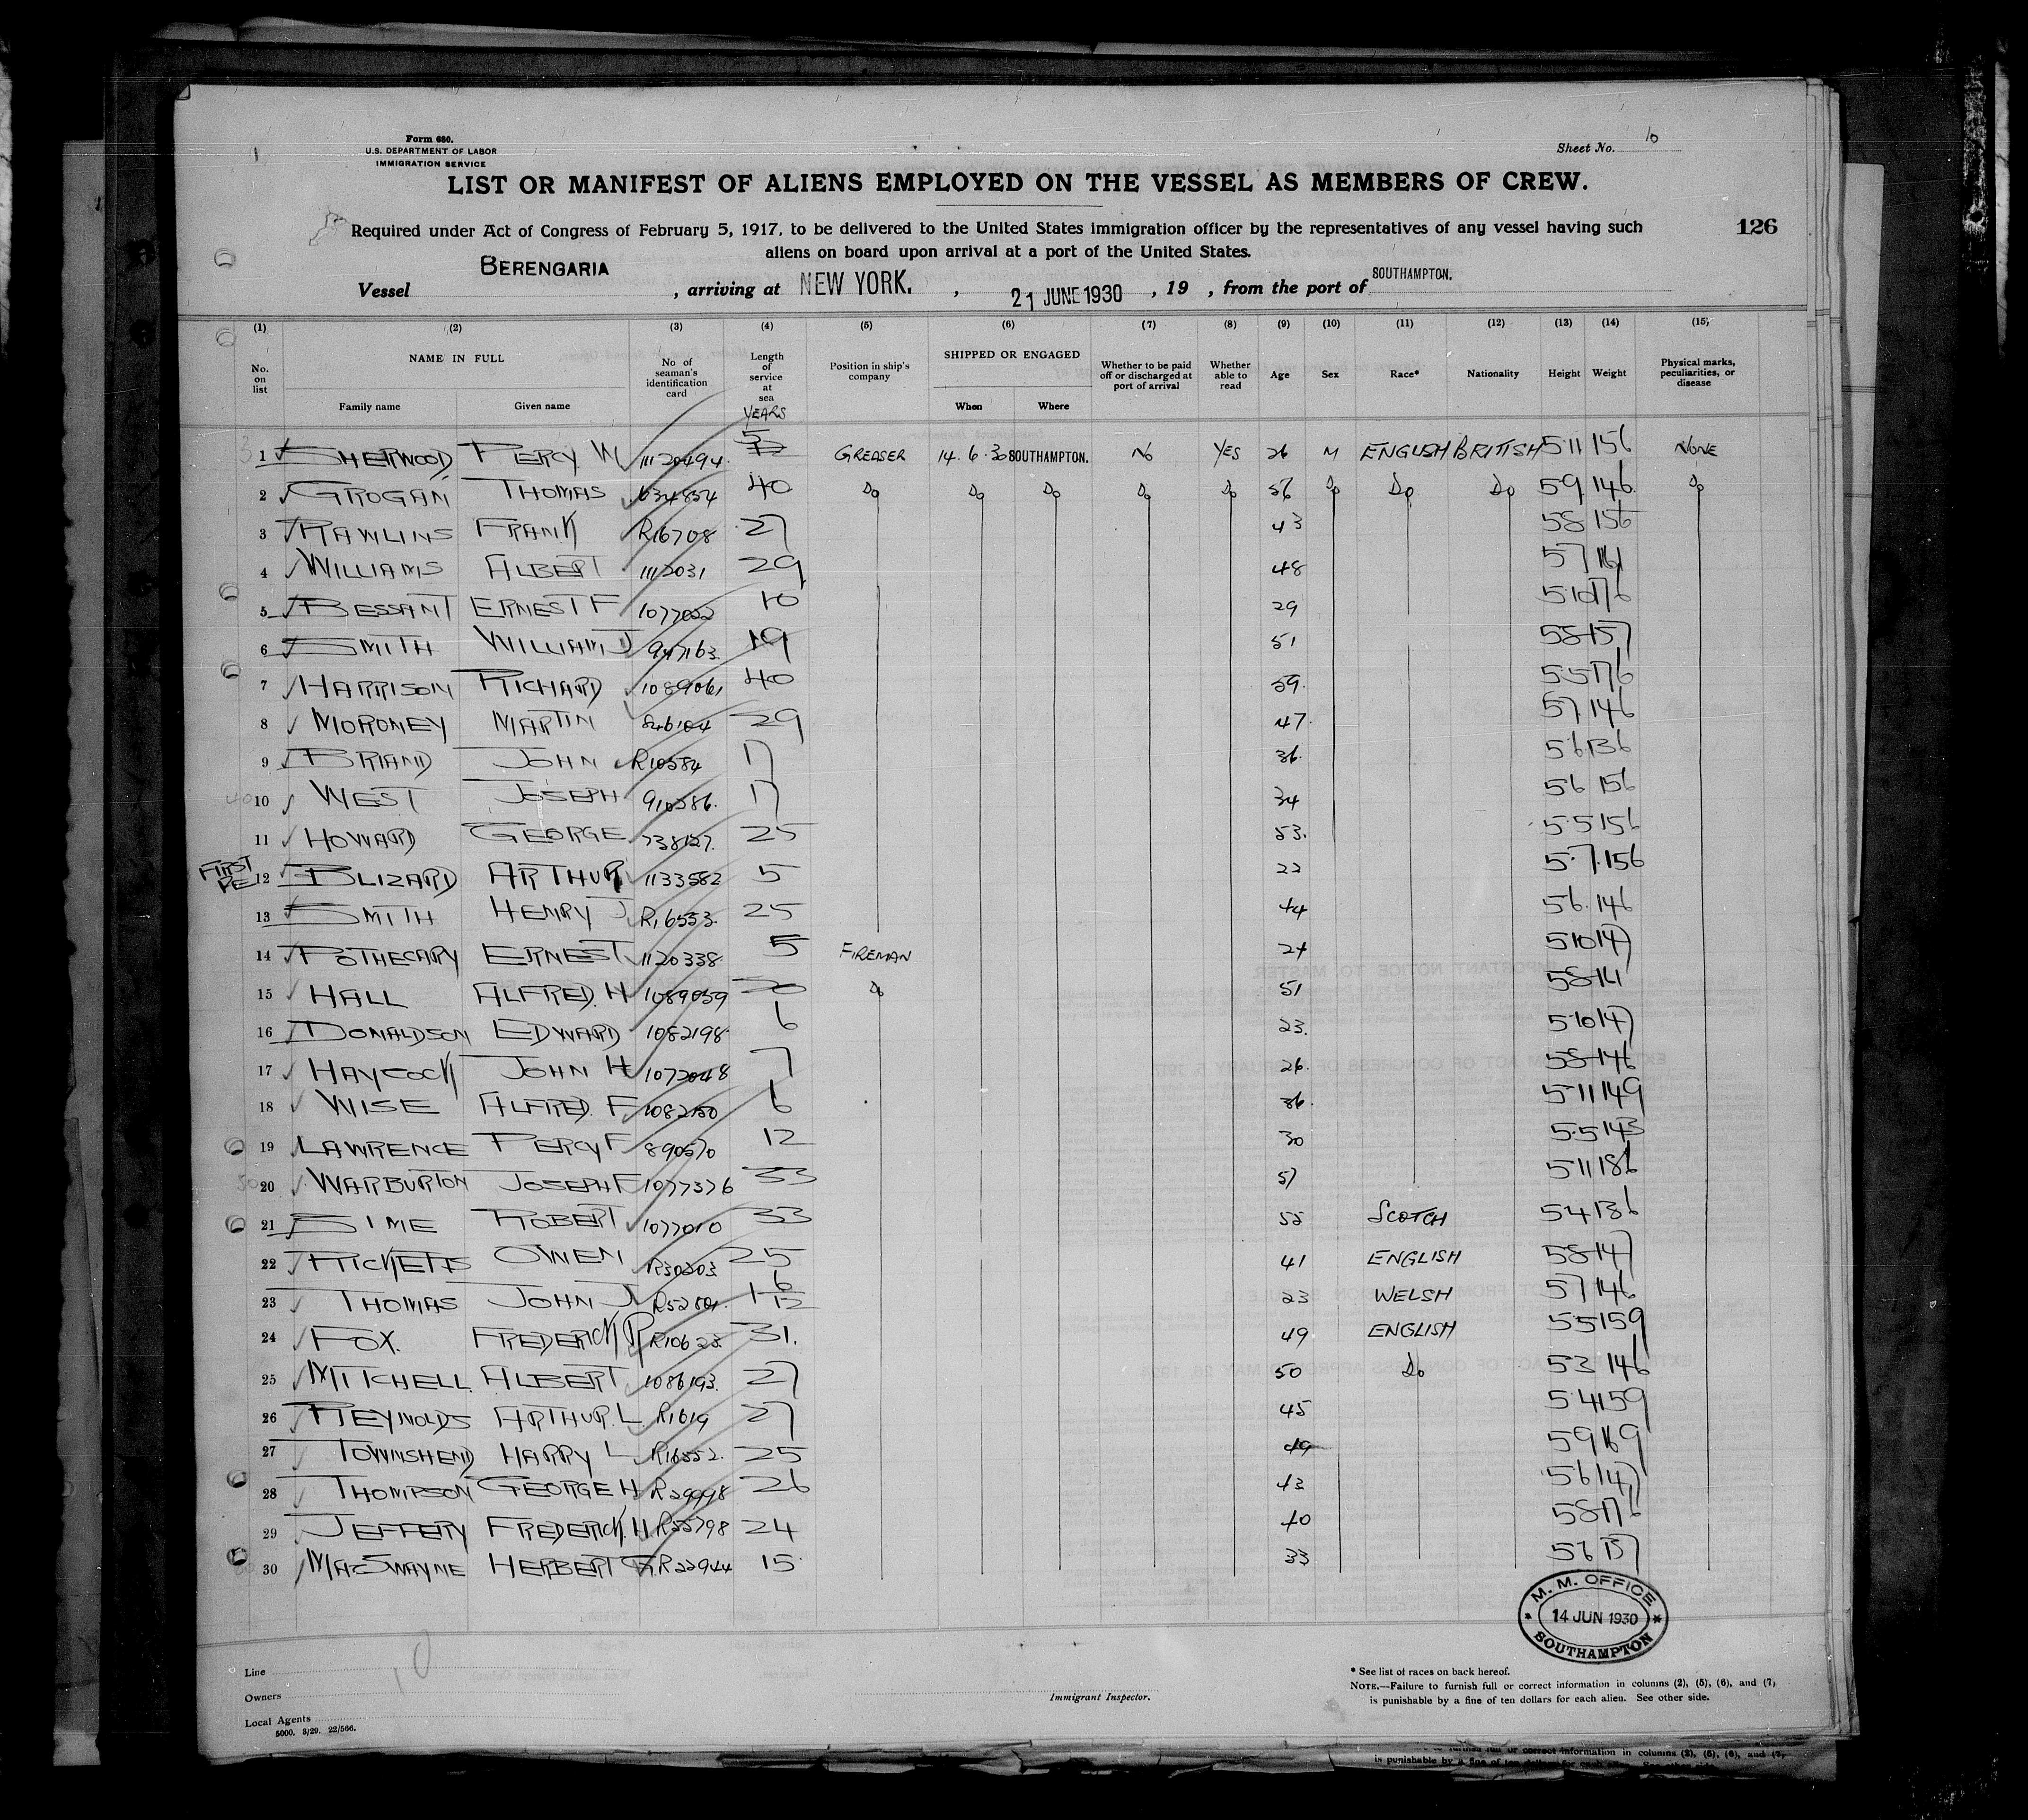 Form 680.
U.S. DEPARTMENT OF LABOR
IMMIGRATION SERVICE
Sheet No. 10
LIST OR MANIFEST OF ALIENS EMPLOYED ON THE VESSEL AS MEMBERS OF CREW.
Required under Act of Congress of February 5, 1917, to be delivered to the United States immigration officer by the representatives of any vessel having such
126
aliens on board upon arrival at a port of the United States.
Vessel BERENGARIA, arriving at NEW YORK., 21 JUNE 1930, 19 , from the port of SOUTHAMPTON.
(1) (2) (3) (4) (5) (6) (7) (8) (9) (10) (11) (12) (13) (14) (15)
No. on list NAME IN FULL Family name Given name No of seaman's identification card Length of service at sea YEARS Position in ship's company SHIPPED OR ENGAGED When Where Whether to be paid off or discharged at port of arrival Whether able to read Age Sex Race* Nationality Height Weight Physical marks, peculiarities, or disease
1 SHERWOOD PERCY W 1120494 5 GREASER 14.6.30 SOUTHAMPTON. No YES 26 M ENGLISH BRITISH 5.11 156 NONE
2 GROGAN THOMAS 634854 40 Do Do Do Do Do 56 Do Do Do 59 146 Do
3 RAWLINS FRANK R16708 27 43 58 156
4 WILLIAMS ALBERT 1112031 29 48 57 161
5 BESSANT ERNEST F 1077022 10 29 5.10 176
6 SMITH WILLIAM J 947163 19 51 58 157
7 HARRISON RICHARD 1089061 40 59 55 176
8 MORONEY MARTIN 846164 29 47 57 146
9 BRIAND JOHN R10584 17 36 56 136
10 WEST JOSEPH 910586 17 34 56 156
11 HOWARD GEORGE 738127 25 53 5.5 156
FIRST
12 BLIZARD ARTHUR 1133582 5 22 5.7 156
13 SMITH HENRY J R16553 25 44 56 146
14 POTHECARY ERNEST 1120338 5 FIREMAN 24 510 147
15 HALL ALFRED. H 1089059 30 Do 51 58 141
16 DONALDSON EDWARD 1082198 6 23 510 147
17 HAYCOCK JOHN H 1072048 7 26 58 146
18 WISE ALFRED. F 1082150 6 36 511 149
19 LAWRENCE PERCY F 890570 12 30 5.5 143
20 WARBURTON JOSEPH F 1077376 33 57 511 186
21 SIME ROBERT 1077010 33 55 SCOTCH 54 136
22 RICKETTS OWEN R30203 25 41 ENGLISH 58 147
23 THOMAS JOHN J R52801 1 6/12 23 WELSH 57 146
24 FOX. FREDERICK R R10623 31. 49 ENGLISH 55 159
25 MITCHELL ALBERT 1086193 27 50 Do 53 146
26 REYNOLDS ARTHUR. L R1619 27 45 54 159
27 TOWNSHEND HARRY L R16552 25 49 59 169
28 THOMPSON GEORGE H R29998 26 43 56 147
29 JEFFERY FREDERICK. H R55798 24 40 58 176
30 MACSWAYNE HERBERT R22944 15 33 56 157
M. M. OFFICE
14 JUN 1930
SOUTHAMPTON
Line
Owners
Local Agents
5000. 3/29. 22/566.
Immigrant Inspector.
* See list of races on back hereof.
NOTE.—Failure to furnish full or correct information in columns (2), (5), (6), and (7),
is punishable by a fine of ten dollars for each alien. See other side.